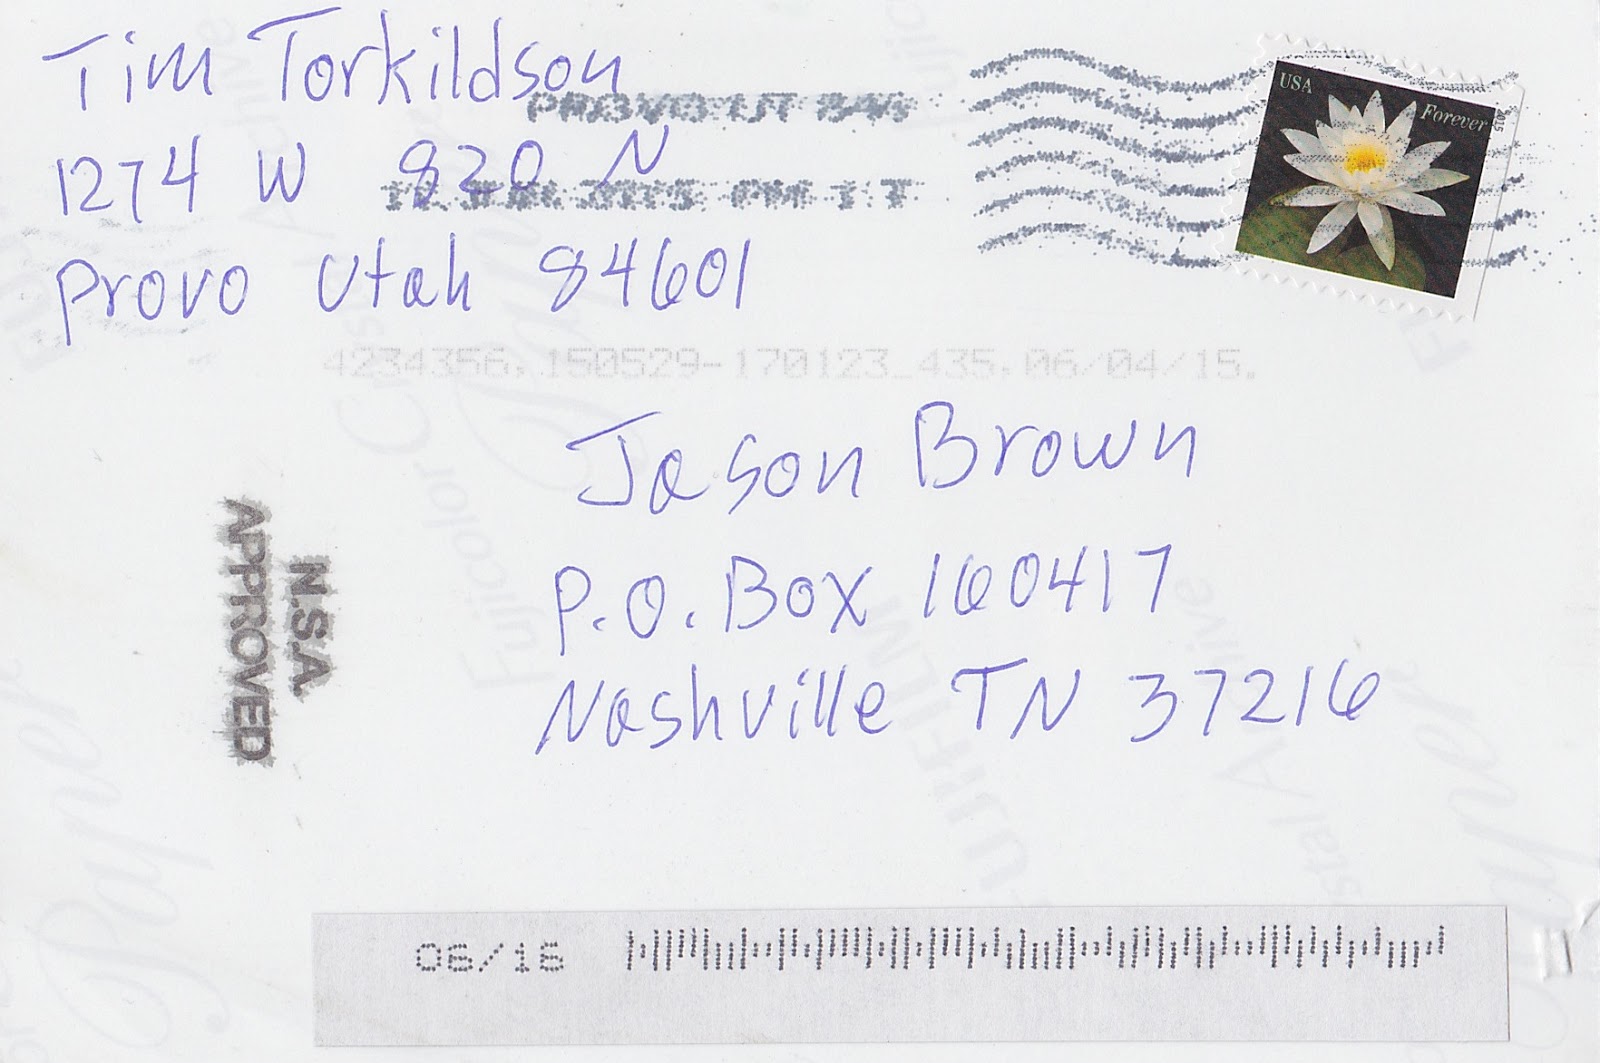 Tim Torkildson
PROVO UT 846
1274 W 820 N
PM 1 T
Provo Utah 84601
USA
Forever
2015
4234356.150529-170123_435.06/04/15.
Jason Brown
P.O. Box 160417
Nashville TN 37216
N.S.A.
APPROVED
06/16
Fujicolor Crystal Archive
FUJIFILM